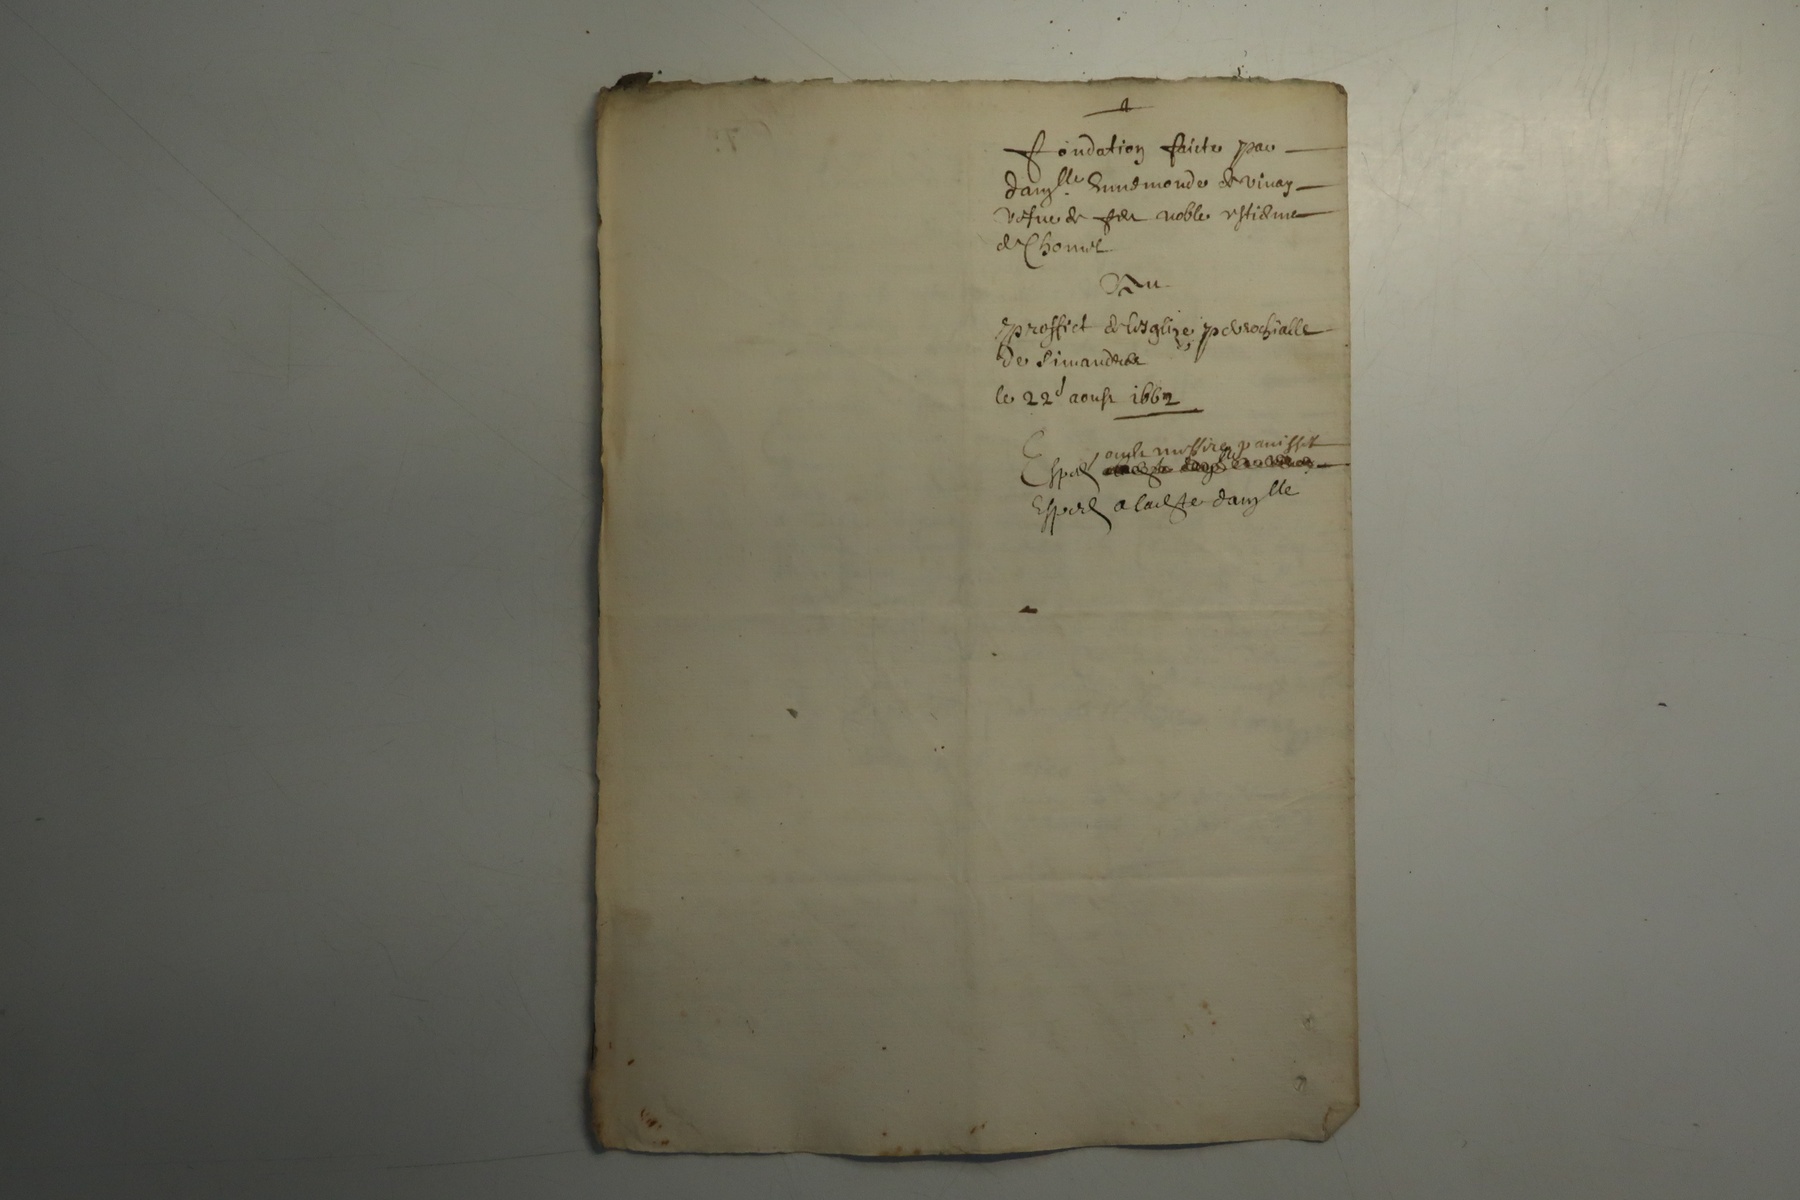 fondation faicte par
damlle Ennemonde de vinay
vefue de feu noble estienne
de Chomel
Au
proffict de lesglize parrochialle
de Simandre
le 22d aoust 1662
messire panisset
Exped
Exped a lad damlle